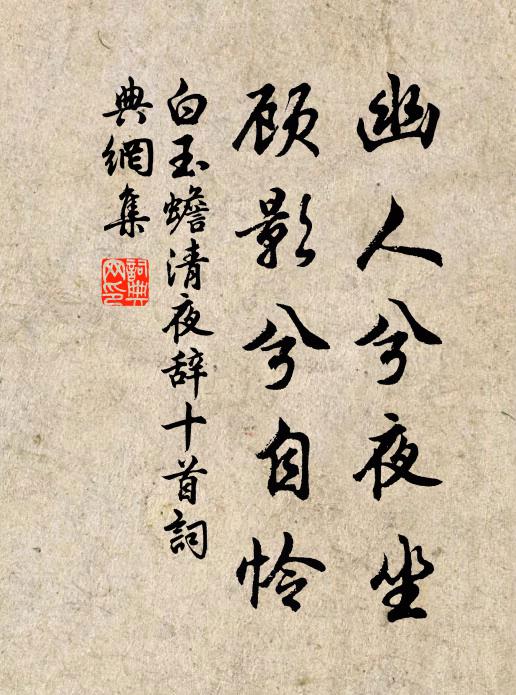 幽人兮夜坐
顾影兮自怜
白玉蟾清夜辞十首詞
典網集
詞典網印